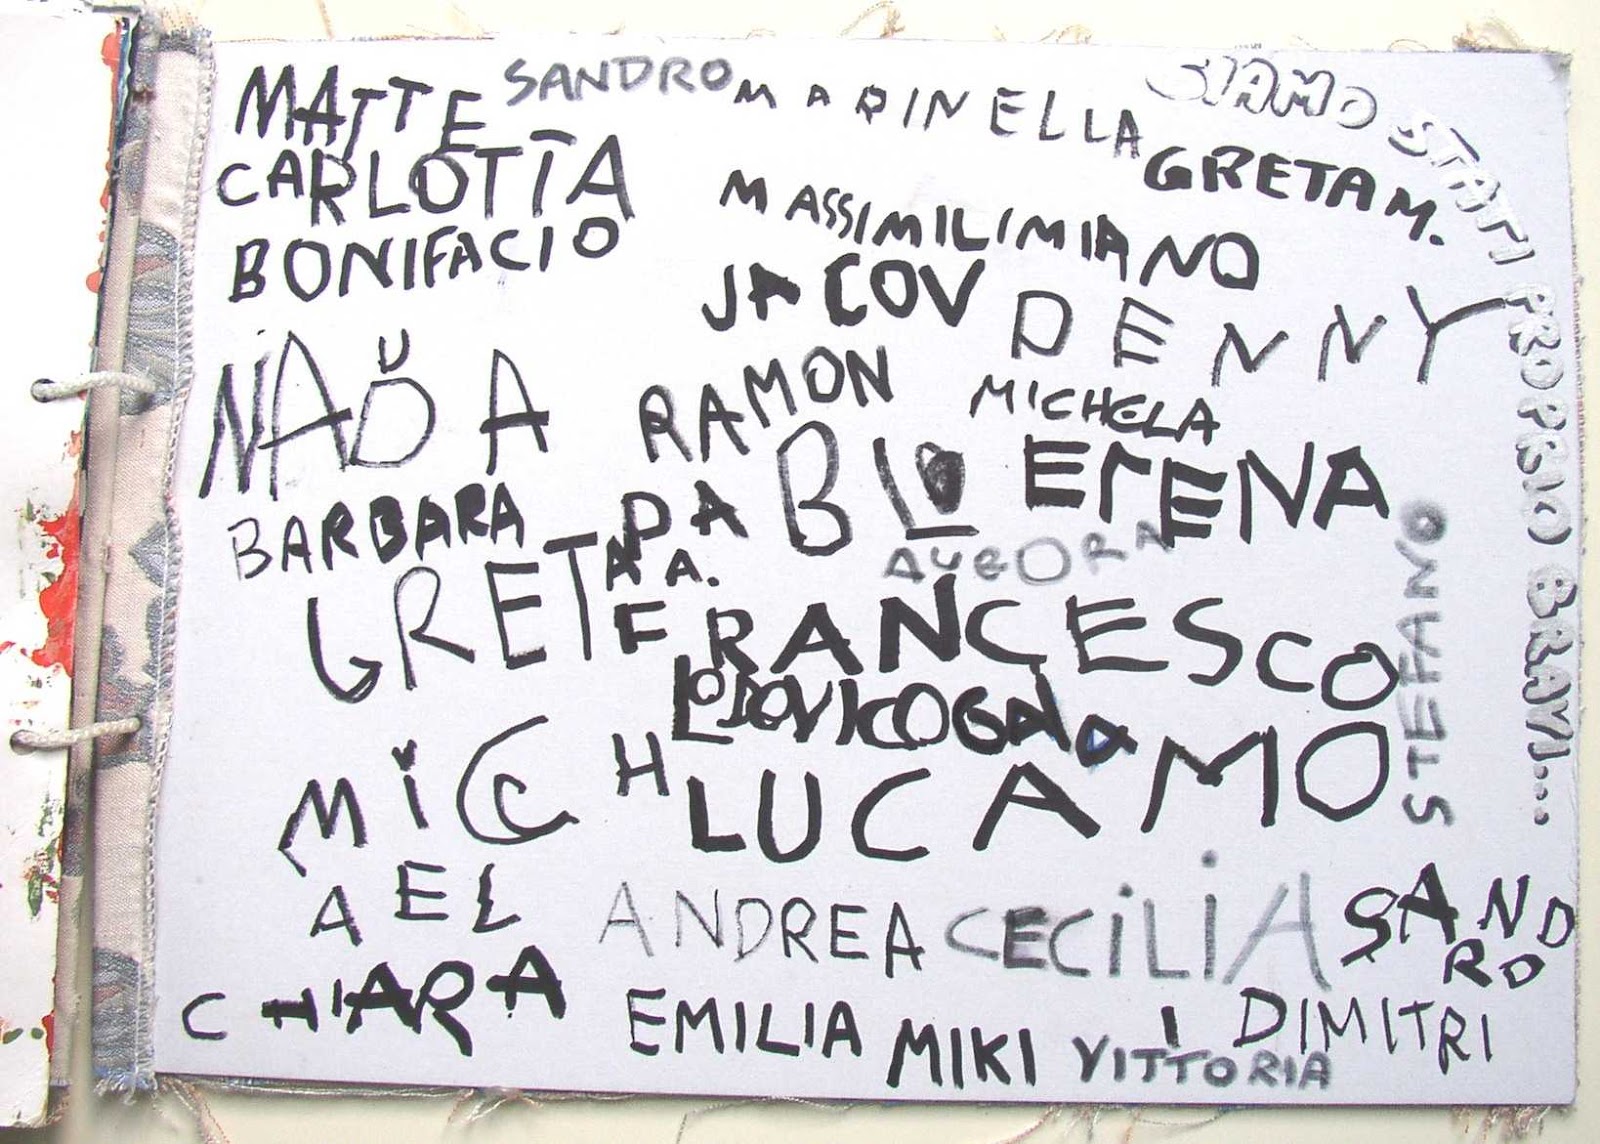 MATTE
SANDRO
MARINELLA
SIAMO STATI PROPRIO BRAVI....
CARLOTTA
GRETA M.
BONIFACIO
MASSIMILIMIANO
JACOV
DENNY
NADA
RAMON
MICHELA
PABLO
ELENA
BARBARA
AURORA
GRETA A.
FRANCESCO
STEFANO
LODOVICO
MICH
LUCA MO
AEL
ANDREA
CECILIA
SANDRO
CHIARA
EMILIA
MIKI
VITTORIA
DIMITRI